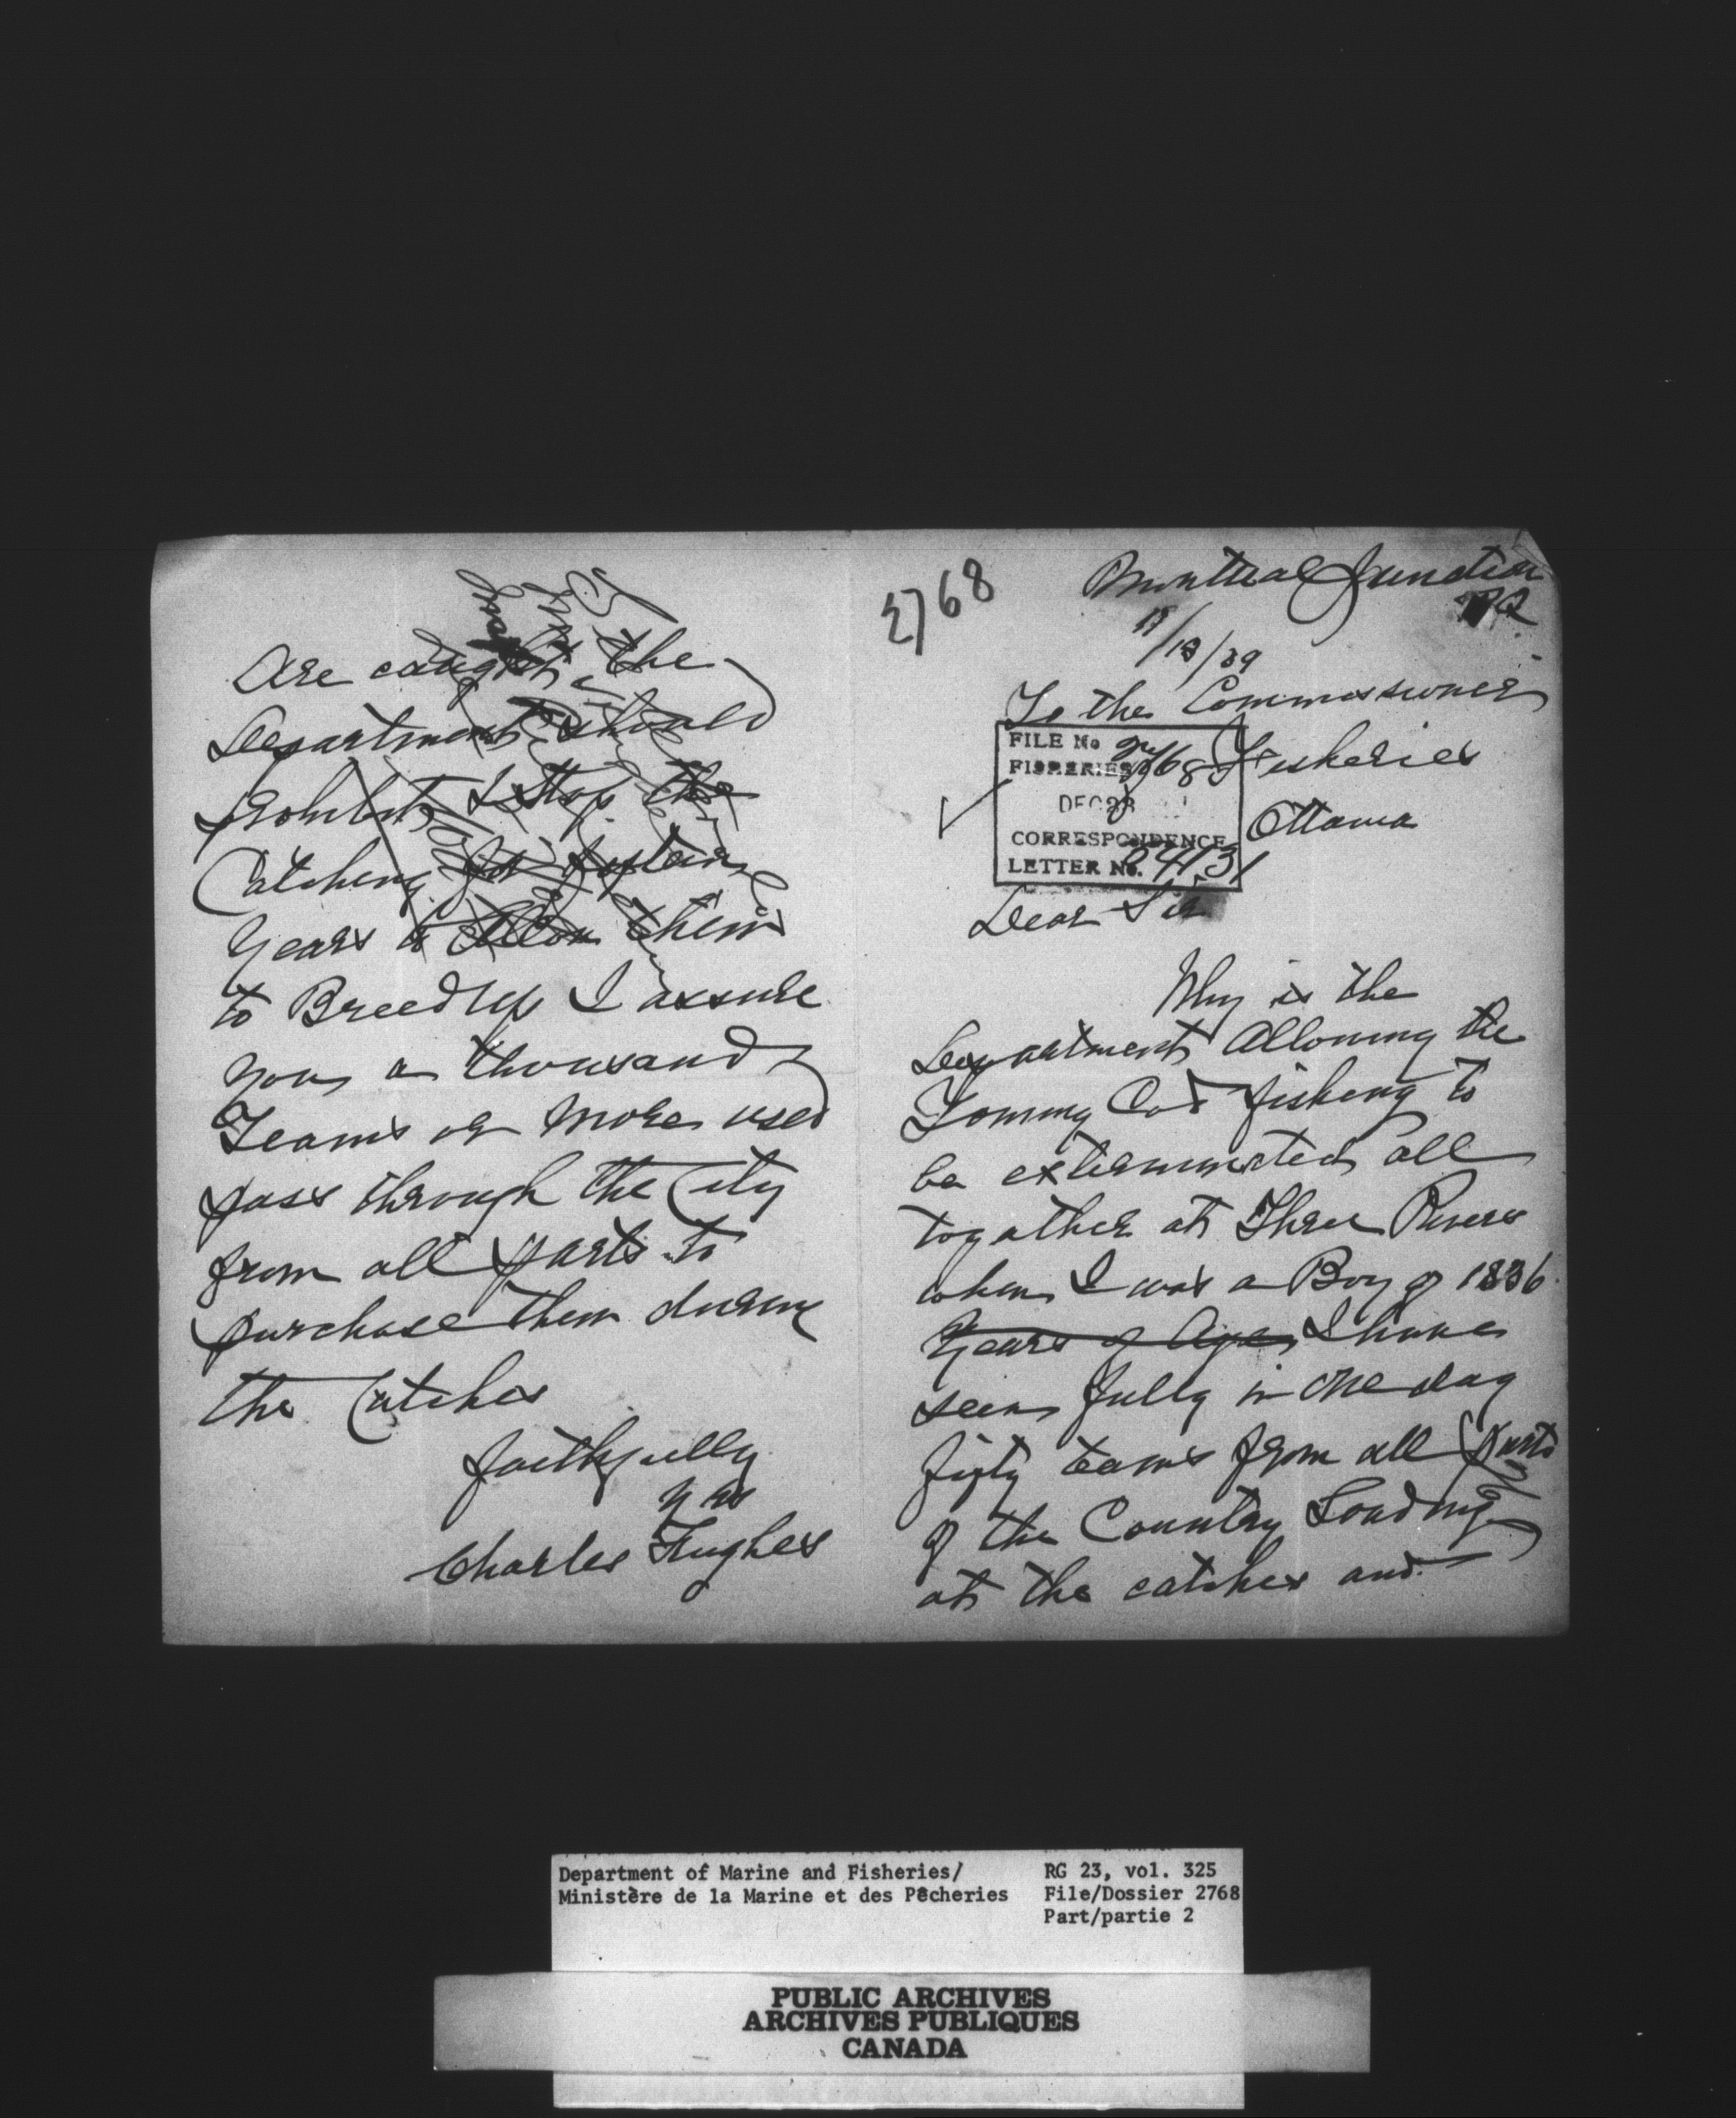 2768
Montreal Junction
PQ
To the Commissioner
Fisheries
Ottawa
FILE No 2768
FISHERIES
DEC 28
CORRESPONDENCE
LETTER No. 24131
Dear Sir
Why is the
Department Allowing the
Tommy Cod fishing to
be exterminated all
together at Three Rivers
when I was a Boy of 1836
Years of Age I have
seen fully in one day
fifty teams from all parts
of the Country Loading
at the catches and
Are caught the
Department should
prohibit & stop the
Catching for
Years to Allow them
to Breed up I assure
you a thousand
Teams or more used
pass through the City
from all parts to
purchase them during
the Catches
faithfully
yrs
Charles Hughes
Department of Marine and Fisheries/
Ministère de la Marine et des Pêcheries
RG 23, vol. 325
File/Dossier 2768
Part/partie 2
PUBLIC ARCHIVES
ARCHIVES PUBLIQUES
CANADA